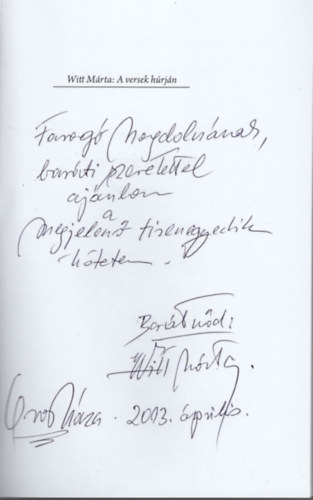 Witt Márta: A versek húrján
Faragó Magdolnának,
baráti szeretettel
ajánlom
a
megjelenő tizenegyedik
kötetem.
Barátnőd:
Witt Márta.
Orosháza. 2013. április.